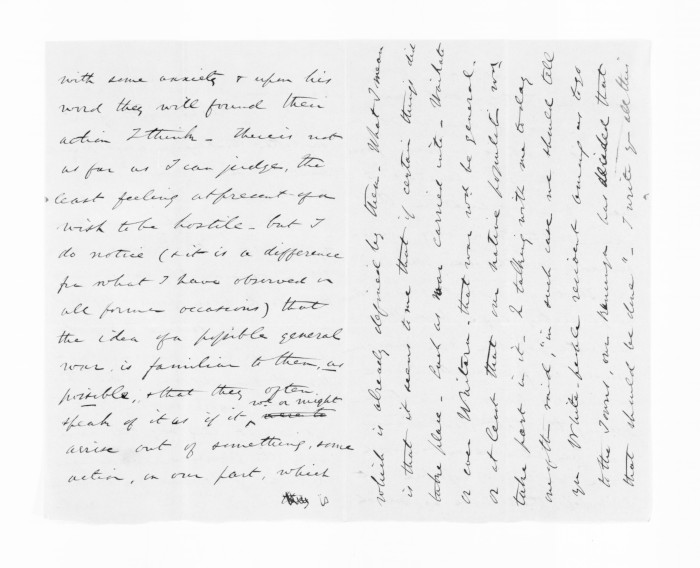 with some anxiety & upon his
word they will found their
action I think - There is not
as far as I can judge, the
least feeling at present of a
wish to be hostile - but I
do notice (& it is a difference
fm what I have observed on
all former occasions) that
the idea of a possible general
war is familiar to them, as
possible, & that they often
speak of it as if it wd or might were to
arise out of something, some
action, on our part, which
is
which is already defined by them - What I mean
is that it seems to me that if certain things did
take place - Such as war carried into - Waikato
or even Waitara - that war wd be general -
or at least that our native population wd
take part in it - In talking with me today
one of them said, "in such case we should tell
you White people resident among us to go
to the Towns, our Runanga has decided that
that should be done" - I write you all this